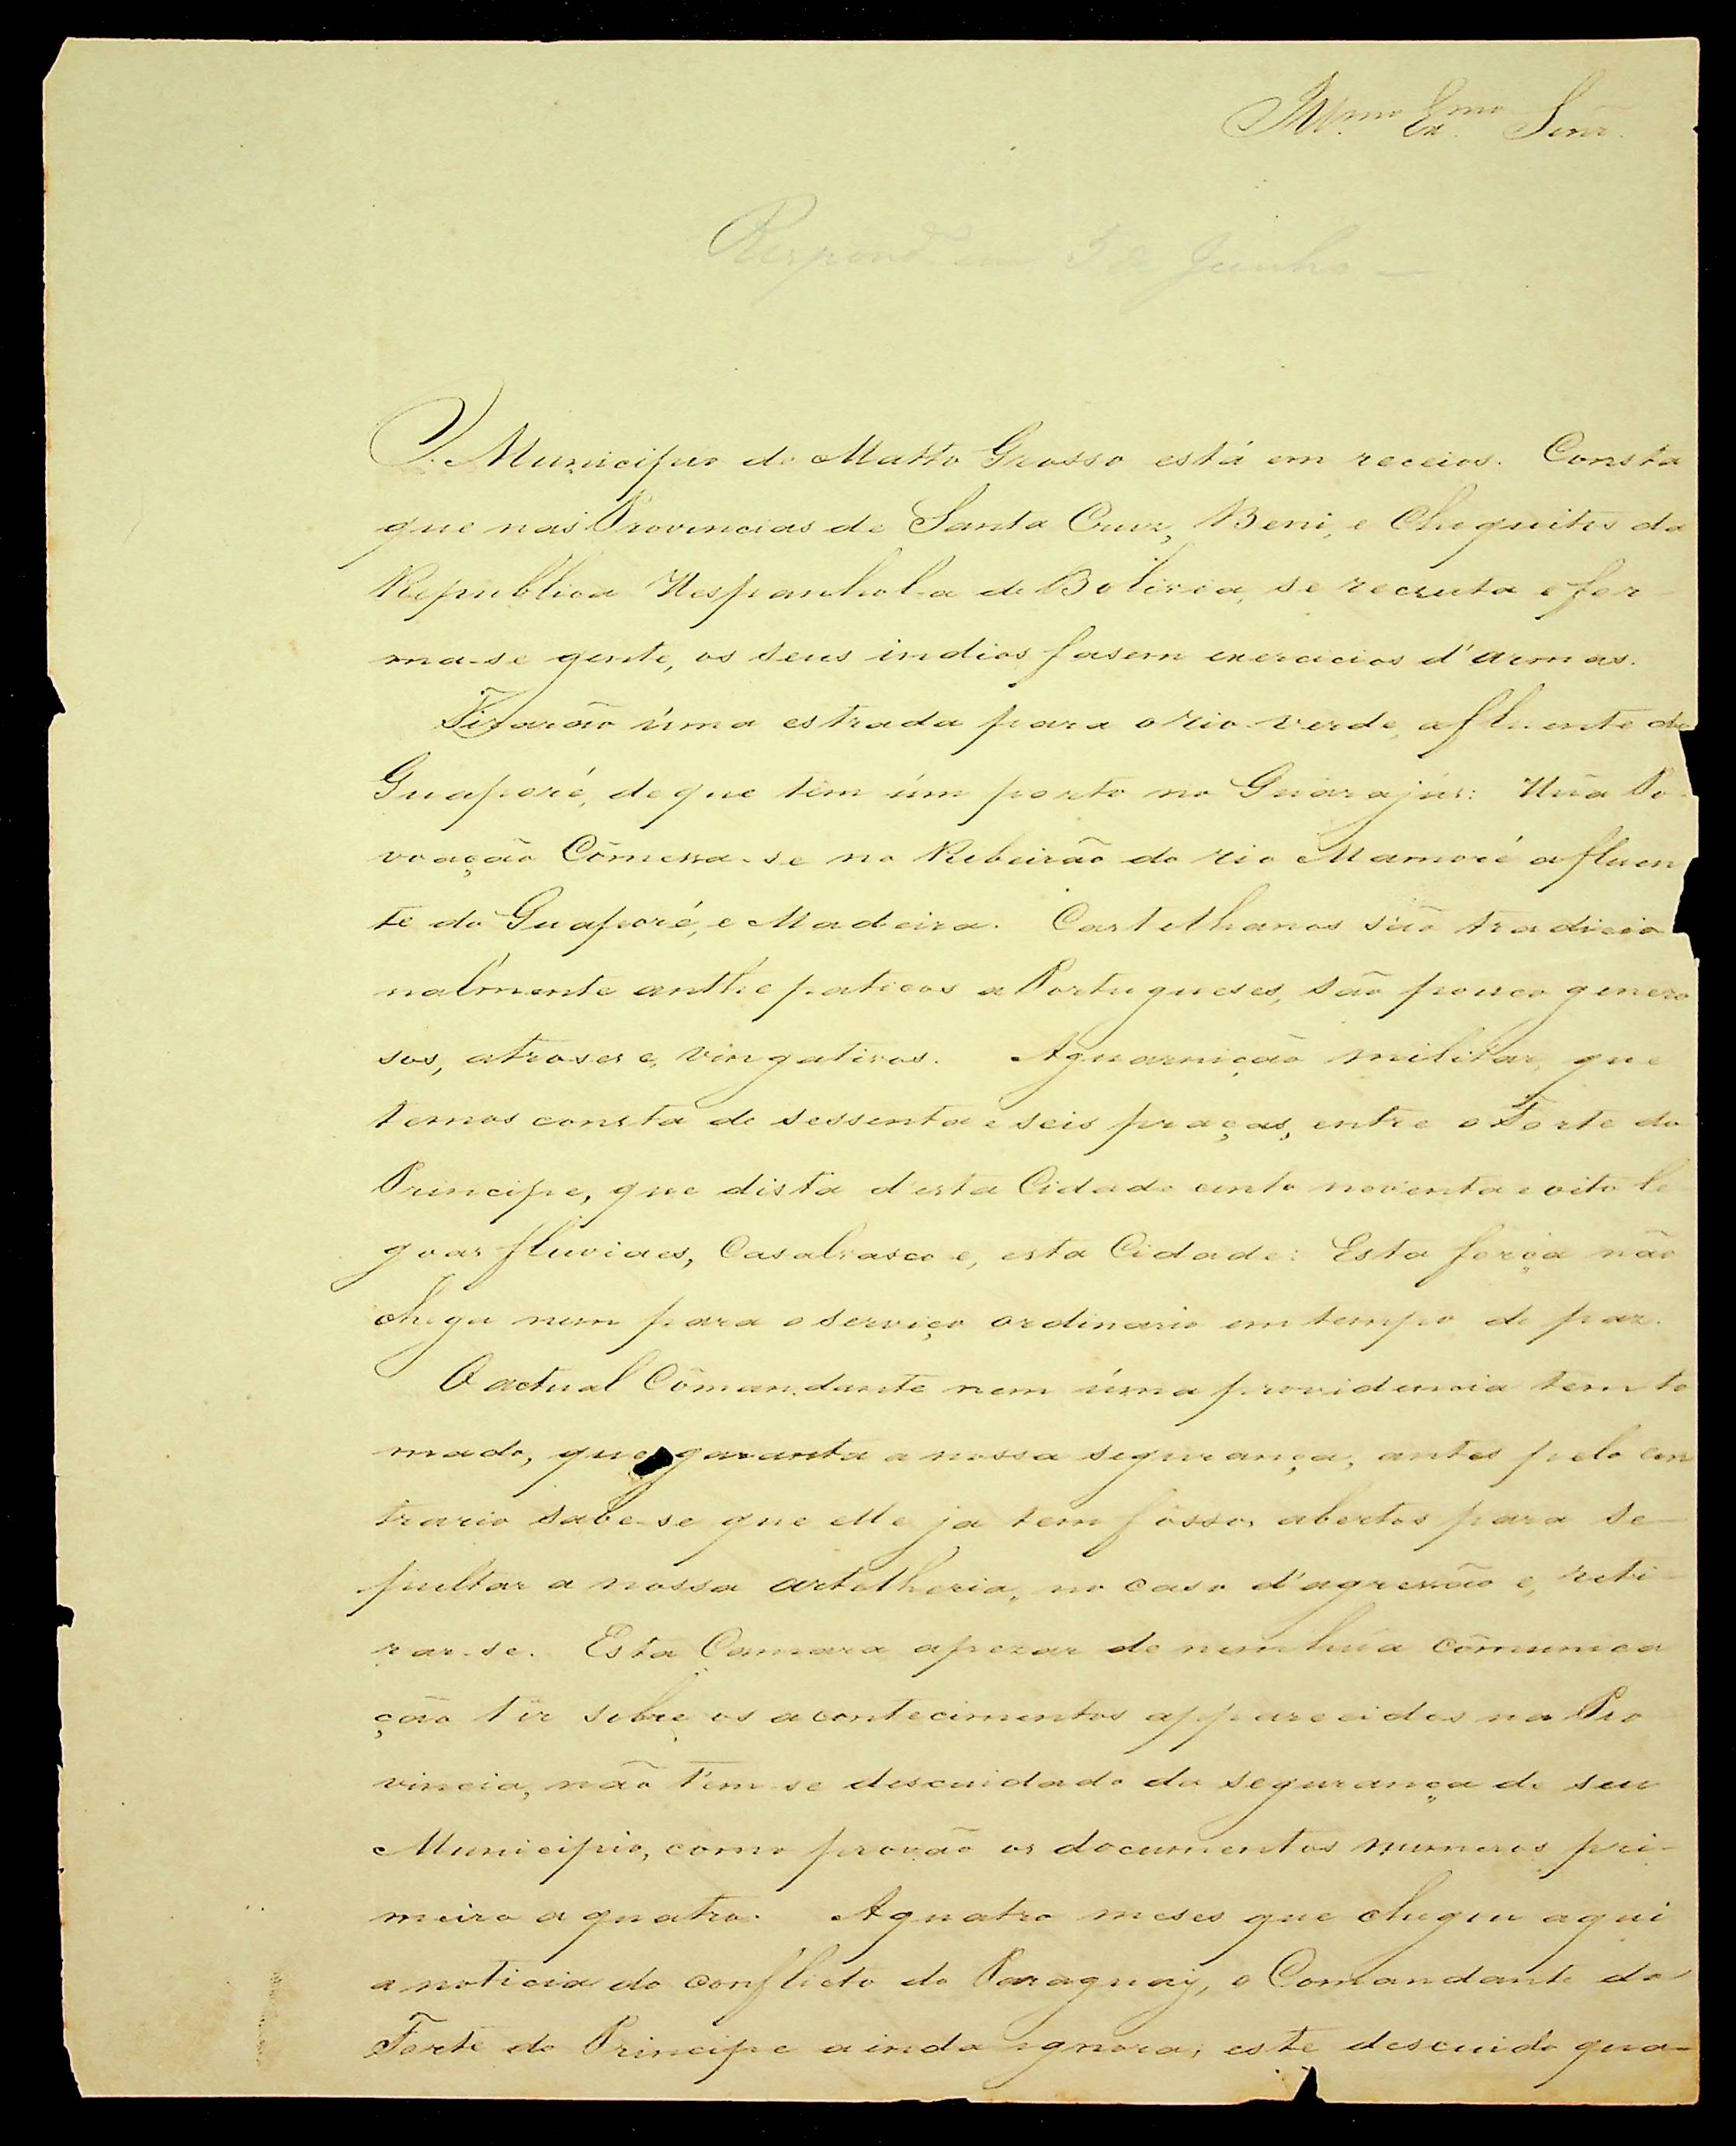 Ill.mo Ex.mo Senr.
Respond. em 5 de Junho —
O Municipio de Matto Grosso está em receios. Consta
que nas Provincias de Santa Cruz, Beni, e Chequitos da
Republica Hespanhol-a de Bolivia, se recruta e for-
ma-se gente, os seus indios fasem exercicios d'armas.
Tirarão úma estrada para o rio verde, afluente do
Guaporé, de que têm úm porto no Guarajús: Hũa Po-
voação Cômessa-se no Ribeirão do rio Mamoré afluen
te do Guaporé, e Madeira. Castelhanos são tradicio
nalmente anthepaticos a Portugueses, são pouco genero
sos, atroses e, vingativos. Aguarnição militar, que
temos consta de sessenta e seis praças, entre o Forte do
Principe, que dista d'esta Cidade cento noventa e oito le
goas fluviaes, Casalvasco e, esta Cidade: Esta força não
chega nem para o serviço ordinario em tempo de paz.
O actual Cômandante nem úma providencia tem to
mado, que garanta a nossa segurança, antes pelo con
trario sabe-se que elle ja tem fossos abertos para se-
pultar a nossa artelheria, no caso d'agressão e, reti-
rar-se. Esta Camara apezar de nenhũa cômunica
ção ter sobre os acontecimentos apparecidos na Pro
vincia, não tem-se descuidado da segurança de seu
Municipio, como provão os documentos numeros pri-
meiro a quatro. Aquatro meses que chegou aqui
a noticia do conflicto do Paraguay, o Comandante do
Forte do Principe ainda ignora; este descuido qua-